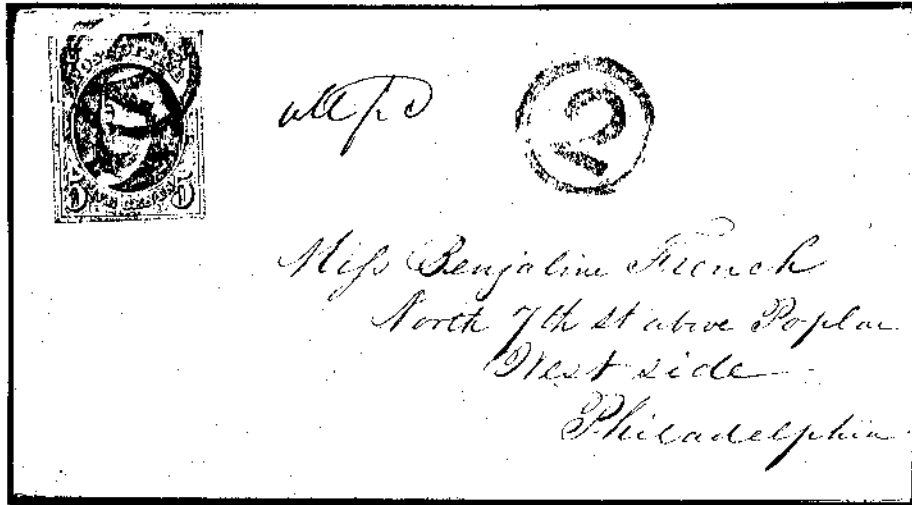 POST OFFICE
5 5
all pd
2
Miss Benjaline French
North 7th st above Poplar
West side
Philadelphia